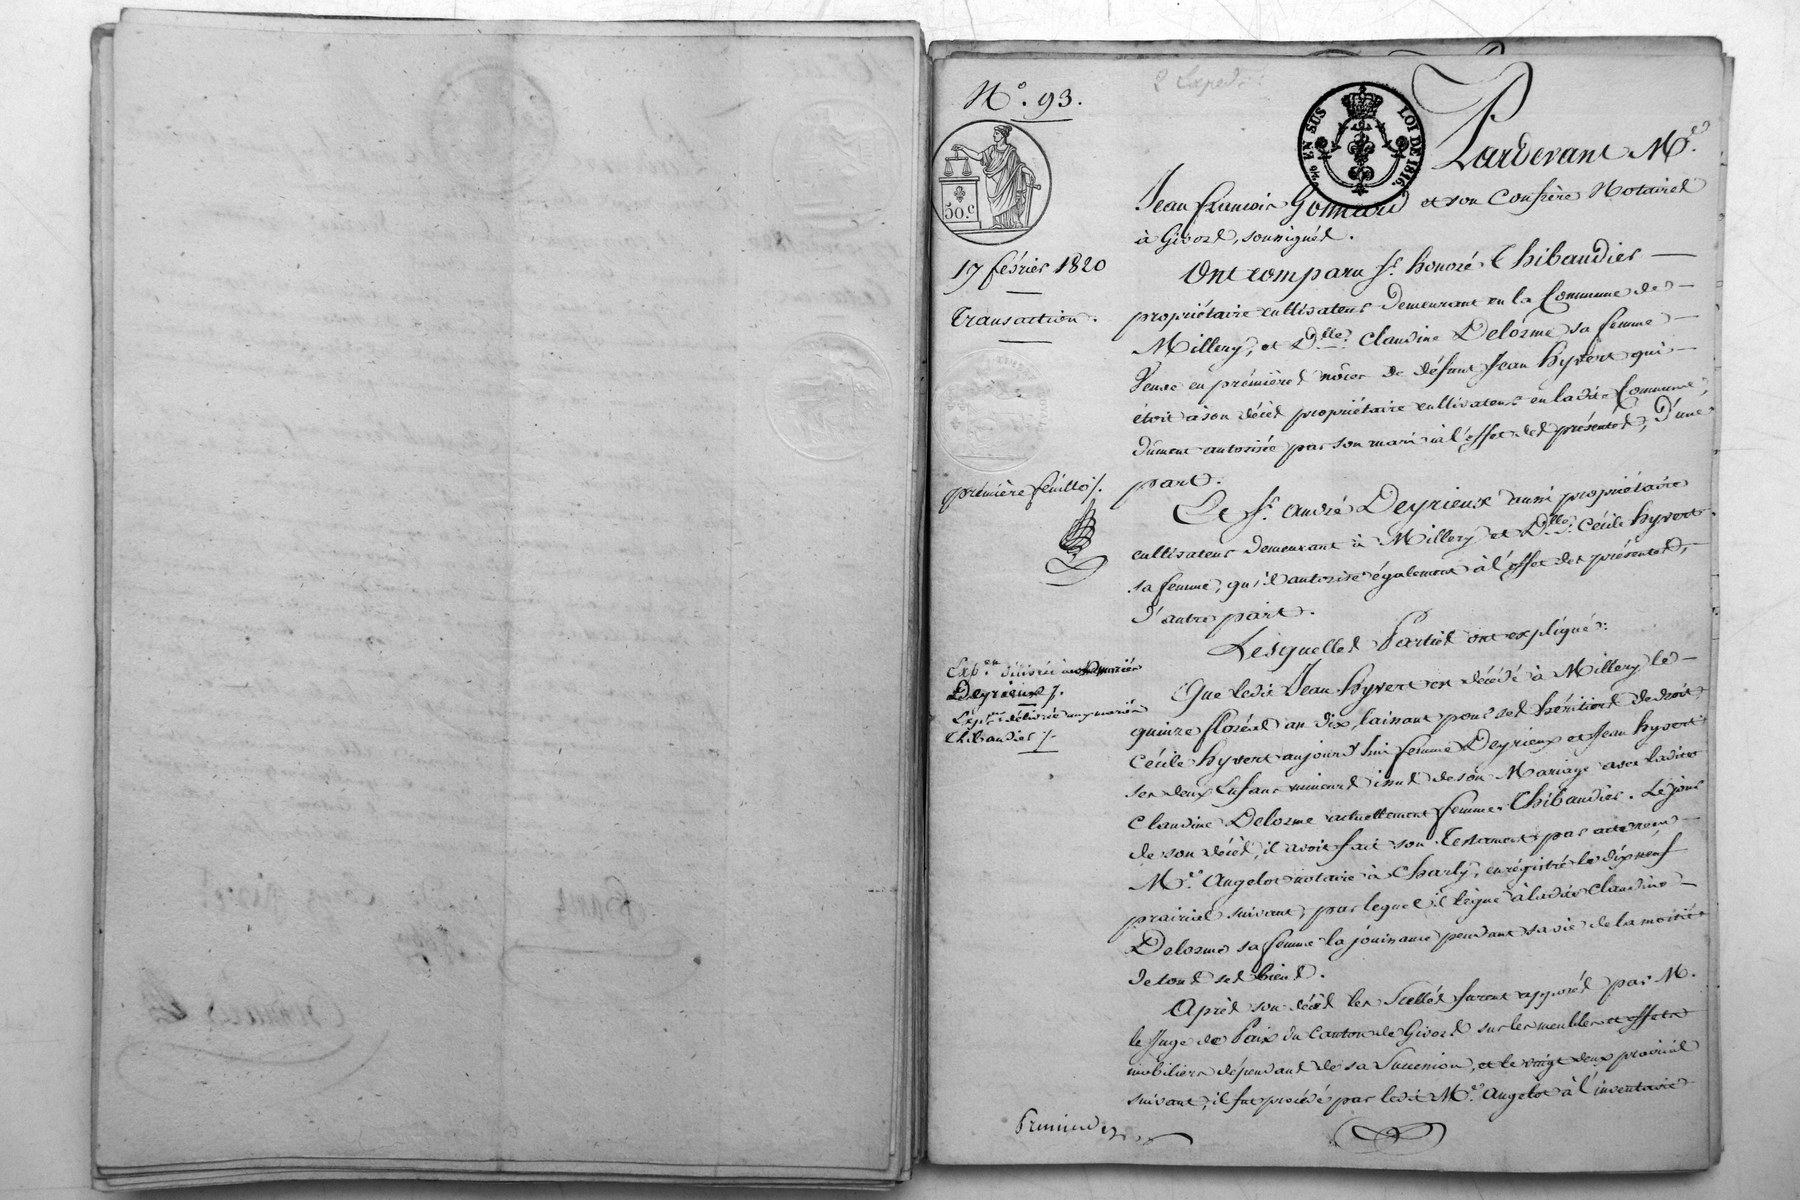 N.° 93.
2 Exped.
50.c
17 février 1820
Transaction.
première feuille
Exp.on délivrée aux mariés
Deyrieux
Exp.on délivrée aux mariés
Chibaudier
5/10 EN SUS
LOI DE 1816.
Pardevant M.e
Jean François Gonnard et son Confrère Notaires
à Givors, soussignés.
Ont comparu Sr. honoré Thibaudier
propriétaire cultivateur demeurant en la Commune de
Millery, et Dlle. Claudine Delorme sa femme
Veuve en prémières nôces de défunt Jean hyvert qui
étoit à son décès propriétaire cultivateur en ladite Commune,
dûment autorisée par son mari à l'effet des présentes, d'une
part.
Le Sr. andré Deyrieux aussi propriétaire
cultivateur demeurant à Millery et Dlle. Cécile hyvert
sa femme, qu'il autorise également à l'effet des présentes,
d'autre part.
Lesquelles Parties ont expliqué:
Que ledit Jean hyvert est décédé à Millery le
quinze floréal an dix, laissant pour ses héritiers de droit
Cécile hyvert aujourd'hui femme Deyrieux et Jean hyvert
ses deux Enfans mineurs issus de son Mariage avec ladite
Claudine Delorme actuellement femme Thibaudier. Le jour
de son décès, il avoit fait son Testament par acte reçu
M.e Angelot notaire à Charly, enrégistré le dix neuf
prairial suivant, par lequel il lègue à ladite Claudine
Delorme sa femme la jouissance pendant sa vie de la moitié
de tous ses biens.
Après son décès les Scellés furent apposés par M.
le Juge de Paix du Canton de Givors sur les meubles et effets
mobiliers dépendans de sa Succession, et le vingt deux prairial
suivant, il fut procédé par ledit M.e Angelot à l'inventaire